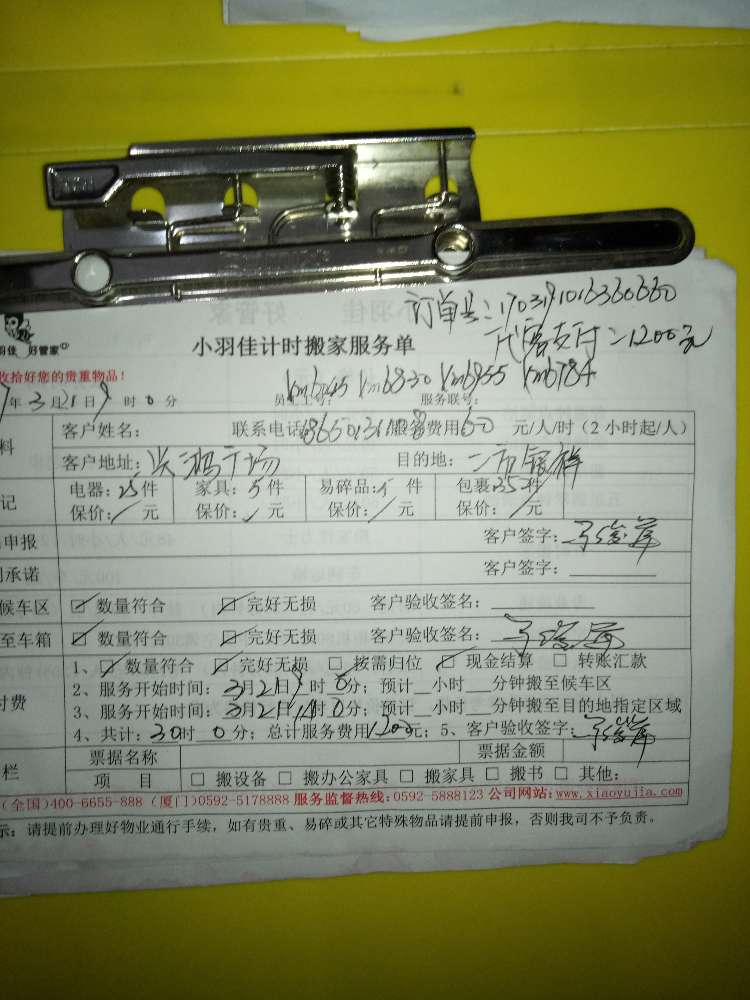 订单号:170319101636060
代客支付:1200元
羽佳 好管家
小羽佳计时搬家服务单
收拾好您的贵重物品!
年3月21日9时0分 员工工号: 服务联号:
客户姓名: 联系电话 服务费用60元/人/时(2小时起/人)
客户地址: 广场 目的地:
电器:25件 家具:5件 易碎品: 件 包裹35件
保价:/元 保价:/元 保价:/元 保价:/元
申报 客户签字:
承诺 客户签字:
候车区 ☑数量符合 ☑完好无损 客户验收签名:
至车箱 ☑数量符合 ☑完好无损 客户验收签名:
1、☑数量符合 ☑完好无损 □按需归位 ☑现金结算 □转账汇款
2、服务开始时间:3月21日9时0分;预计__小时__分钟搬至候车区
付费 3、服务开始时间:3月21日 时0分;预计__小时__分钟搬至目的地指定区域
4、共计:30时0分;总计服务费用1200元;5、客户验收签字:
票据名称 票据金额
栏 项 目 □搬设备 □搬办公家具 □搬家具 □搬书 □其他:
(全国)400-6655-888 (厦门)0592-5178888 服务监督热线:0592-5888123 公司网站:www.xiaoyujia.com
示:请提前办理好物业通行手续,如有贵重、易碎或其它特殊物品请提前申报,否则我司不予负责。